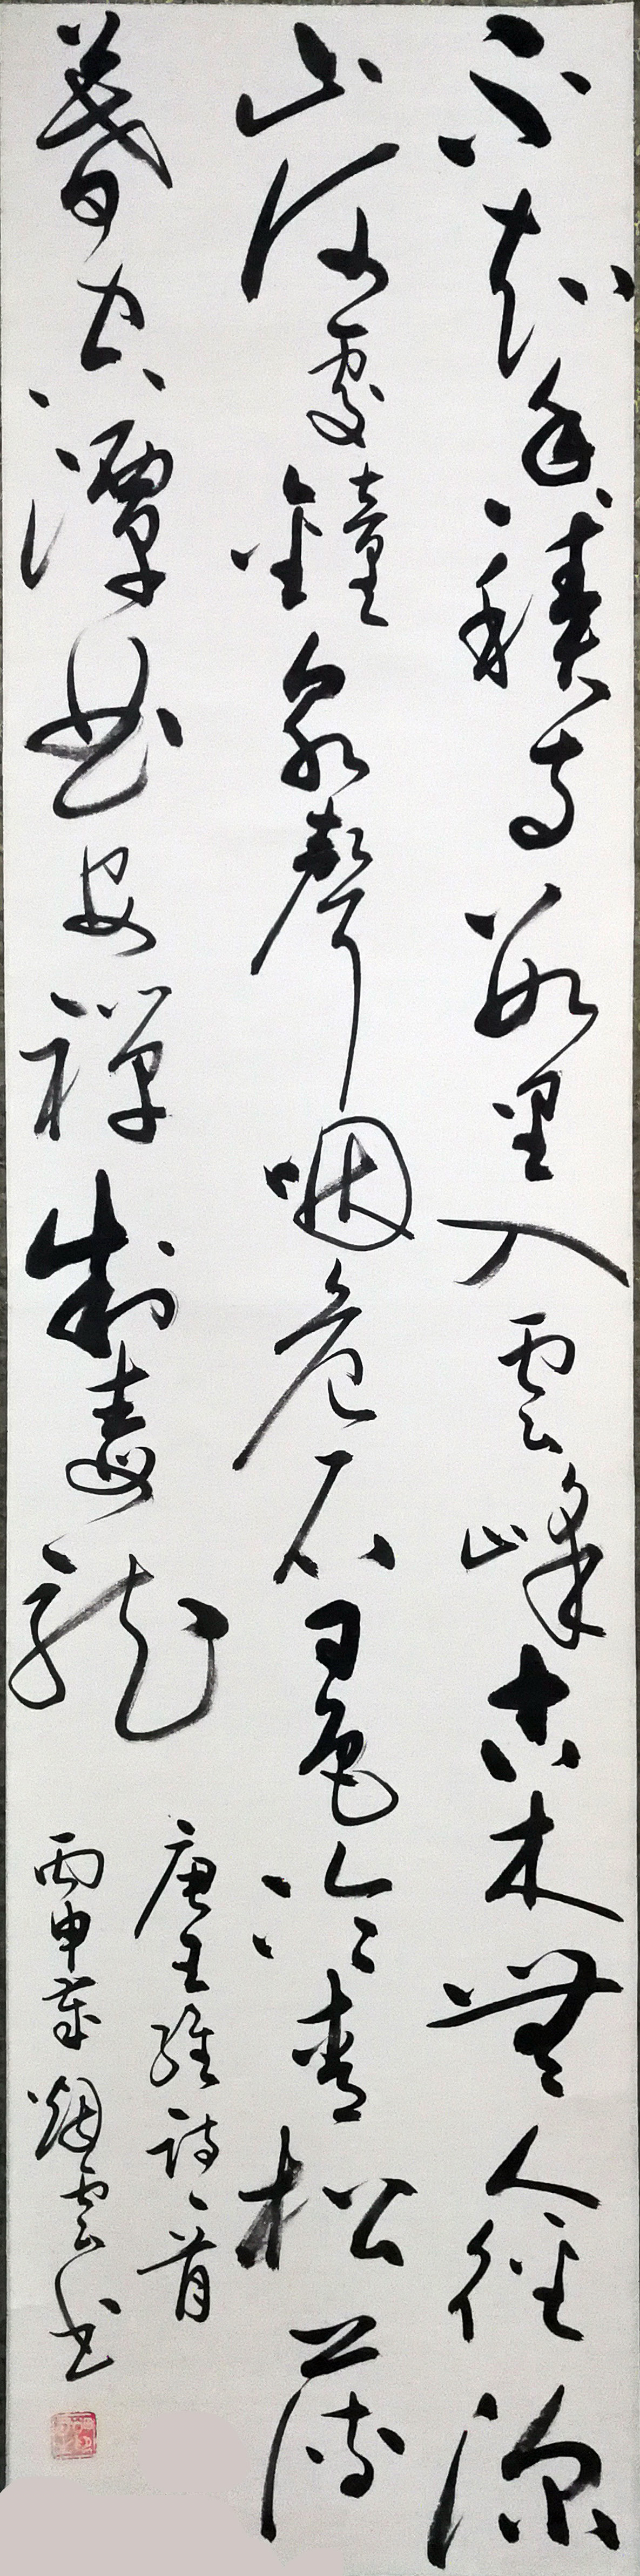 不知香積寺数里入雲峰古木無人徑深
山何處鐘泉聲咽危石日色冷青松薄
暮空潭曲安禪制毒龍
唐王維詩一首
丙申年烟雲书